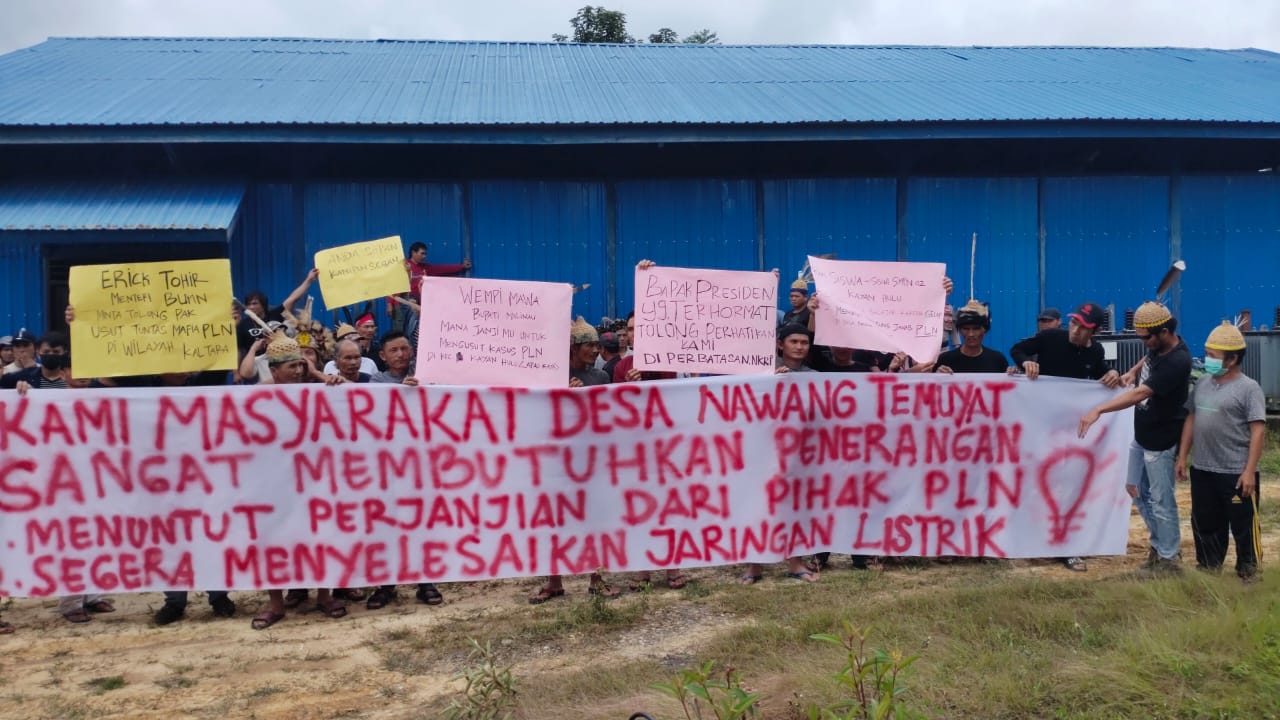 ERICK TOHIR
MENTEFI BUMN
MINTA TOLONG PAK
USUT TUNTAS MAFIA PLN
DI WILAYAH KALTARA
WEMPI MAWA
BUPATI MALINAU
MANA JANJI MU UNTUK
MENGUSUT KASUS PLN
DI KEC KAYAN HULU
BAPAK PRESIDEN
YG. TERHORMAT
TOLONG PERHATIKAN
KAMI
DI PERBATASAN. NKRI
SISWA - SISWI SMPN 02
KAYAN HULU
PLN
KAMI MASYARAKAT DESA NAWANG TEMUYAT
SANGAT MEMBUTUHKAN PENERANGAN
. MENUNTUT PERJANJIAN DARI PIHAK PLN
. SEGERA MENYELESAIKAN JARINGAN LISTRIK